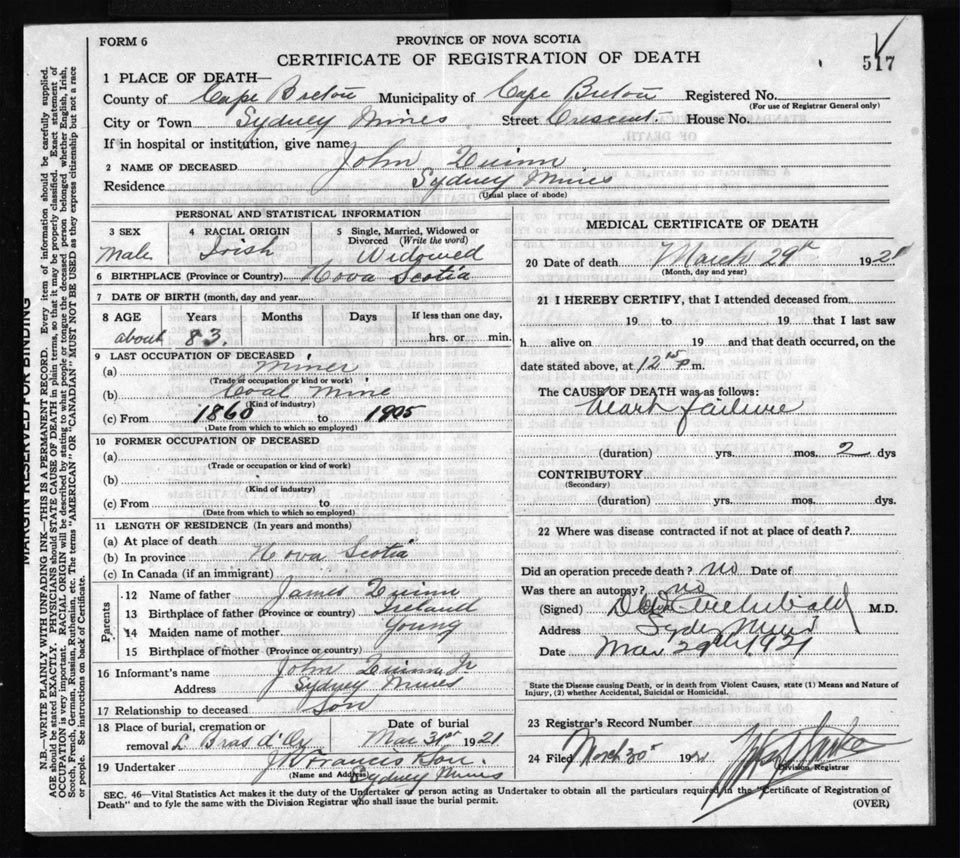 FORM 6
PROVINCE OF NOVA SCOTIA
CERTIFICATE OF REGISTRATION OF DEATH
517
1 PLACE OF DEATH—
County of Cape Breton Municipality of Cape Breton Registered No.
(For use of Registrar General only)
City or Town Sydney Mines Street Crescent. House No.
If in hospital or institution, give name
2 NAME OF DECEASED John Quinn
Residence Sydney Mines
(Usual place of abode)
PERSONAL AND STATISTICAL INFORMATION
3 SEX
male
4 RACIAL ORIGIN
Irish
5 Single, Married, Widowed or
Divorced (Write the word)
Widowed
6 BIRTHPLACE (Province or Country) Nova Scotia
7 DATE OF BIRTH (month, day and year
8 AGE Years Months Days If less than one day,
about 83. hrs. or min.
9 LAST OCCUPATION OF DECEASED
(a) Miner
(Trade or occupation or kind or work)
(b) Coal Mine
(Kind of industry)
(c) From 1860 to 1905
(Date from which to which so employed)
10 FORMER OCCUPATION OF DECEASED
(a)
(Trade or occupation or kind or work)
(b)
(Kind of industry)
(c) From to
(Date from which to which so employed)
11 LENGTH OF RESIDENCE (In years and months)
(a) At place of death
(b) In province Nova Scotia
(c) In Canada (if an immigrant)
Parents
12 Name of father James Quinn
13 Birthplace of father (Province or country) Ireland
14 Maiden name of mother Young
15 Birthplace of mother (Province or country)
16 Informant's name John Quinn Jr
Address Sydney Mines
17 Relationship to deceased Son
18 Place of burial, cremation or
removal L Bras d'Or
Date of burial
Mar 31st 1921
19 Undertaker J Francis & Son.
(Name and Address)
Sydney Mines
MEDICAL CERTIFICATE OF DEATH
20 Date of death March 29th 1921
(Month, day and year)
21 I HEREBY CERTIFY, that I attended deceased from
19 to 19 that I last saw
h alive on 19 and that death occurred, on the
date stated above, at 12 15 P m.
The CAUSE OF DEATH was as follows:
Heart failure
(duration) yrs. mos. 2 dys
CONTRIBUTORY
(Secondary)
(duration) yrs. mos. dys.
22 Where was disease contracted if not at place of death?
Did an operation precede death? no Date of
Was there an autopsy? no
(Signed) Archibald M.D.
Address Sydney Mines
Date Mar 29th 1921
State the Disease causing Death, or in death from Violent Causes, state (1) Means and Nature of
Injury, (2) whether Accidental, Suicidal or Homicidal.
23 Registrar's Record Number
24 Filed March 30th 1921
Division Registrar
SEC. 46—Vital Statistics Act makes it the duty of the Undertaker or person acting as Undertaker to obtain all the particulars required in the "Certificate of Registration of
Death" and to fyle the same with the Division Registrar who shall issue the burial permit.
(OVER)
MARGIN RESERVED FOR BINDING
N.B.—WRITE PLAINLY WITH UNFADING INK—THIS IS A PERMANENT RECORD. Every item of information should be carefully supplied.
AGE should be stated EXACTLY. PHYSICIANS should STATE CAUSE OF DEATH in plain terms, so that it may be properly classified. Exact statement of
OCCUPATION is very important. RACIAL ORIGIN will be described by stating to what people or tongue the deceased person belonged whether English, Irish,
Scotch, French, German, Russian, Ruthenian, etc. The terms "AMERICAN" OR "CANADIAN" MUST NOT BE USED as they express citizenship but not a race
or people. See instructions on back of Certificate.